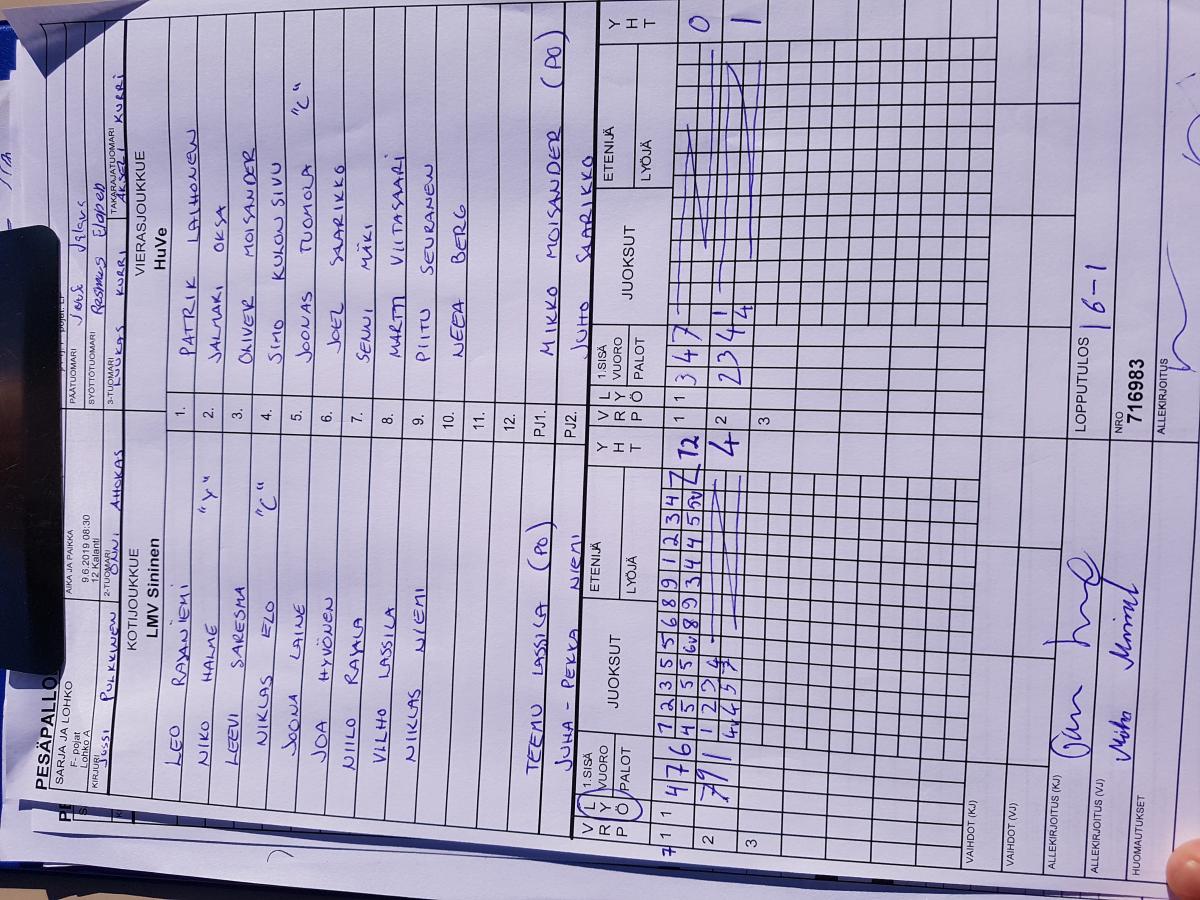 PESÄPALLO
SARJA JA LOHKO
F- pojat
Lohko A
AIKA JA PAIKKA
9.6.2019 08:30
12 Kalanti
PÄÄTUOMARI
SYÖTTÖTUOMARI
Rasmus
KIRJURI
JUSSI PULKKINEN
2-TUOMARI
ONNI AHOKAS
3-TUOMARI
LUUKAS KURRI
TAKARAJATUOMARI
AKSELI KURRI
KOTIJOUKKUE
LMV Sininen
VIERASJOUKKUE
HuVe
LEO RAJANIEMI 1. PATRIK LAIHONEN
NIKO HALME "Y" 2. JALMARI OKSA
LEEVI SARESMA 3. OLIVER MOISANDER
NIKLAS ELO "C" 4. SIMO KUKONSIVU
JOONA LAINE 5. JOONAS TUOMOLA "C"
JOA HYVÖNEN 6. JOEL SAARIKKO
NIILO RAJALA 7. SENNI MÄKI
VILHO LASSILA 8. MARTTI VIITASAARI
NIKLAS NIEMI 9. PIITU SEURANEN
10. NEEA BERG
11.
12.
TEEMU LASSILA (PO) PJ1. MIKKO MOISANDER (PO)
JUHA-PEKKA NIEMI PJ2. JUHO SAARIKKO
V R P
L Y Ö
1.SISÄ VUORO PALOT
JUOKSUT
ETENIJÄ
LYÖJÄ
Y H T
V R P
L Y Ö
1.SISÄ VUORO PALOT
JUOKSUT
ETENIJÄ
LYÖJÄ
Y H T
1 1 4 7 6 7 1 2 3 5 5 6 8 9 1 2 3 4 7 12
4 5 5 5 6V 8 9 3 4 4 5 5V
1 1 3 4 7 0
2 7 9 1 1 2 3 4 4
4V 4 5 7
2 2 3 4 1 1
4
3
3
VAIHDOT (KJ)
VAIHDOT (VJ)
ALLEKIRJOITUS (KJ)
LOPPUTULOS 16-1
ALLEKIRJOITUS (VJ)
NRO
716983
HUOMAUTUKSET
ALLEKIRJOITUS